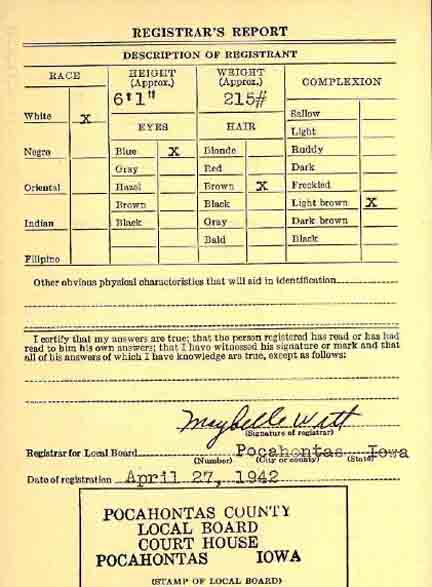 REGISTRAR'S REPORT
DESCRIPTION OF REGISTRANT
RACE
HEIGHT (Approx.)
WEIGHT (Approx.)
COMPLEXION
6'1"
215#
White X
EYES
HAIR
Sallow
Light
Negro
Blue X
Blonde
Ruddy
Gray
Red
Dark
Oriental
Hazel
Brown X
Freckled
Brown
Black
Light brown X
Indian
Black
Gray
Dark brown
Bald
Black
Filipino
Other obvious physical characteristics that will aid in identification
I certify that my answers are true; that the person registered has read or has had
read to him his own answers; that I have witnessed his signature or mark and that
all of his answers of which I have knowledge are true, except as follows:
Maybelle Witt
(Signature of registrar)
Registrar for Local Board Pocahontas Iowa
(Number) (City or county) (State)
Date of registration April 27, 1942
POCAHONTAS COUNTY
LOCAL BOARD
COURT HOUSE
POCAHONTAS IOWA
(STAMP OF LOCAL BOARD)